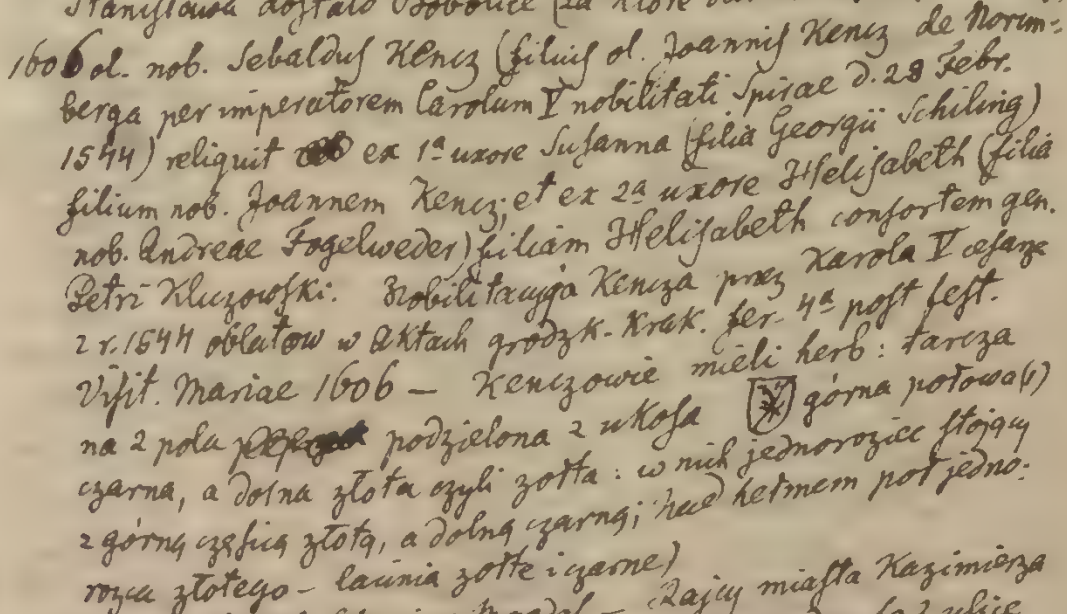 Stanisława dostało Bobolice (za które
1606 ol. nob. Sebaldus Kencz (filius ol. Joannis Kencz de Norim=
berga per imperatorem Carolum V nobilitati Spirae d. 28 Febr.
1544) reliquit ex 1ª uxore Susanna (filia Georgii Schiling)
filium nob. Joannem Kencz; et ex 2ª uxore Helisabeth (filia
nob. Andreae Fogelweder) filiam Helisabeth consortem gen.
Petri Kluzowski. Nobilitacyja Kencza przez Karola V cesarza
z r. 1544 oblatow w Aktach grodzk. Krak. fer. 4ª post fest.
Visit. Mariae 1606 — Kenczowie mieli herb: tarcza
na 2 pola podzielona z ukosa górna połowa (1)
czarna, a dolna złota czyli żółta: w nich jednorożec stojący
z górną częścią złotą, a dolną czarną; nad hełmem poł jedno:
rożca złotego – łacinia żółte i czarne)
Rajcy miasta Kazimierza